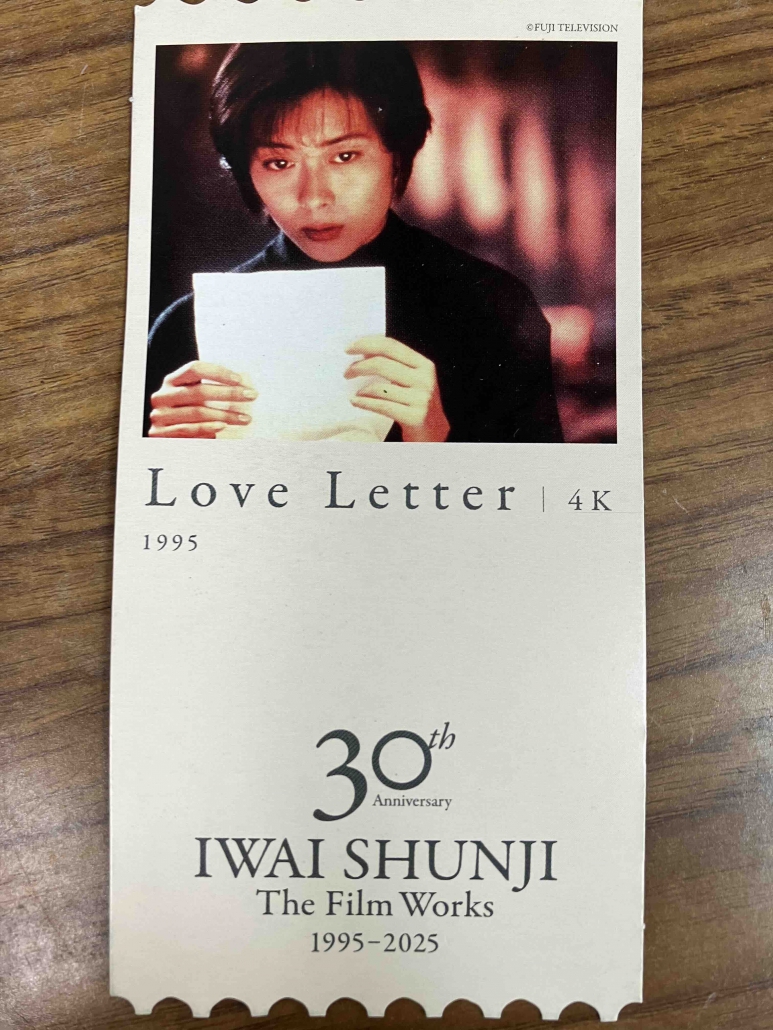 ©FUJI TELEVISION
Love Letter | 4K
1995
30th
Anniversary
IWAI SHUNJI
The Film Works
1995–2025